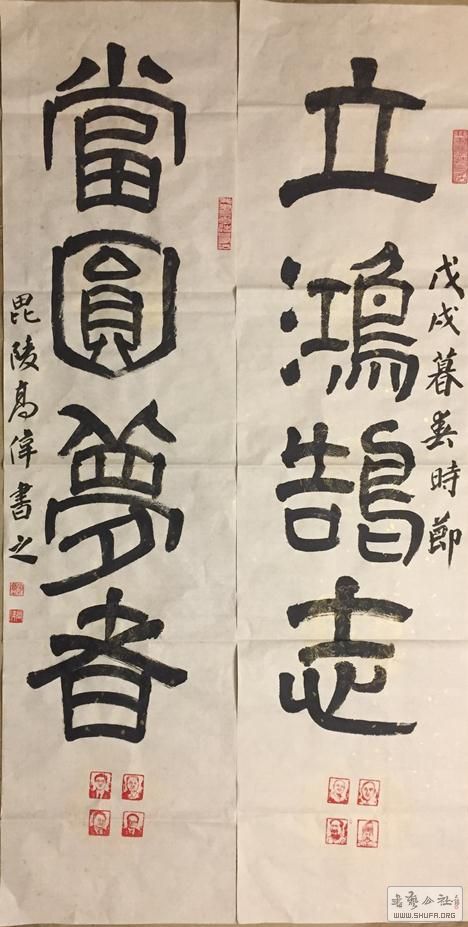 戊戌暮春時節
立鴻鵠志
當圓夢者
毘陵高倖書之
书艺公社
WWW.SHUFA.ORG